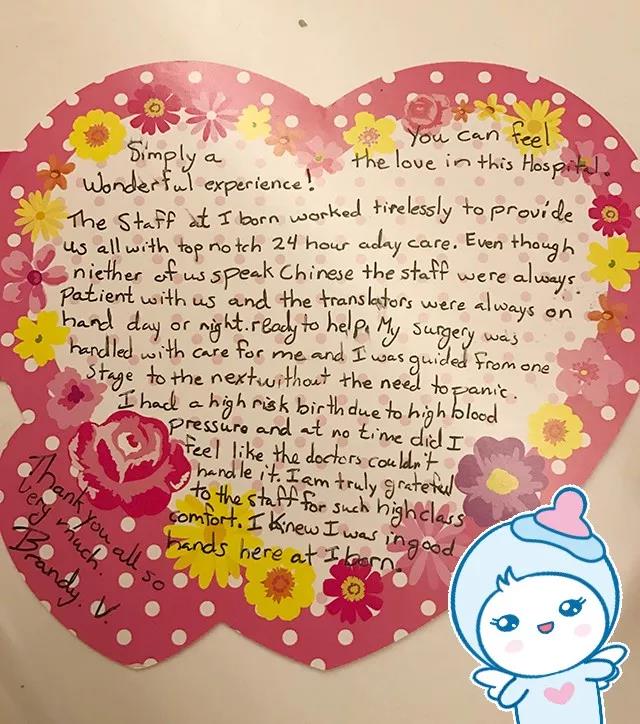 Simply a
Wonderful experience!
You can feel
the love in this Hospital.
The Staff at I born worked tirelessly to provide
us all with top notch 24 hour aday care. Even though
niether of us speak Chinese the staff were always
patient with us and the translators were always on
hand day or night. ready to help. My surgery was
handled with care for me and I was guided from one
Stage to the next without the need to panic.
I had a high risk birth due to high blood
pressure and at no time did I
feel like the doctors couldn't
handle it. I am truly grateful
to the staff for such high class
comfort. I knew I was in good
hands here at I born.
Thank you all so
very much.
Brandy. V.